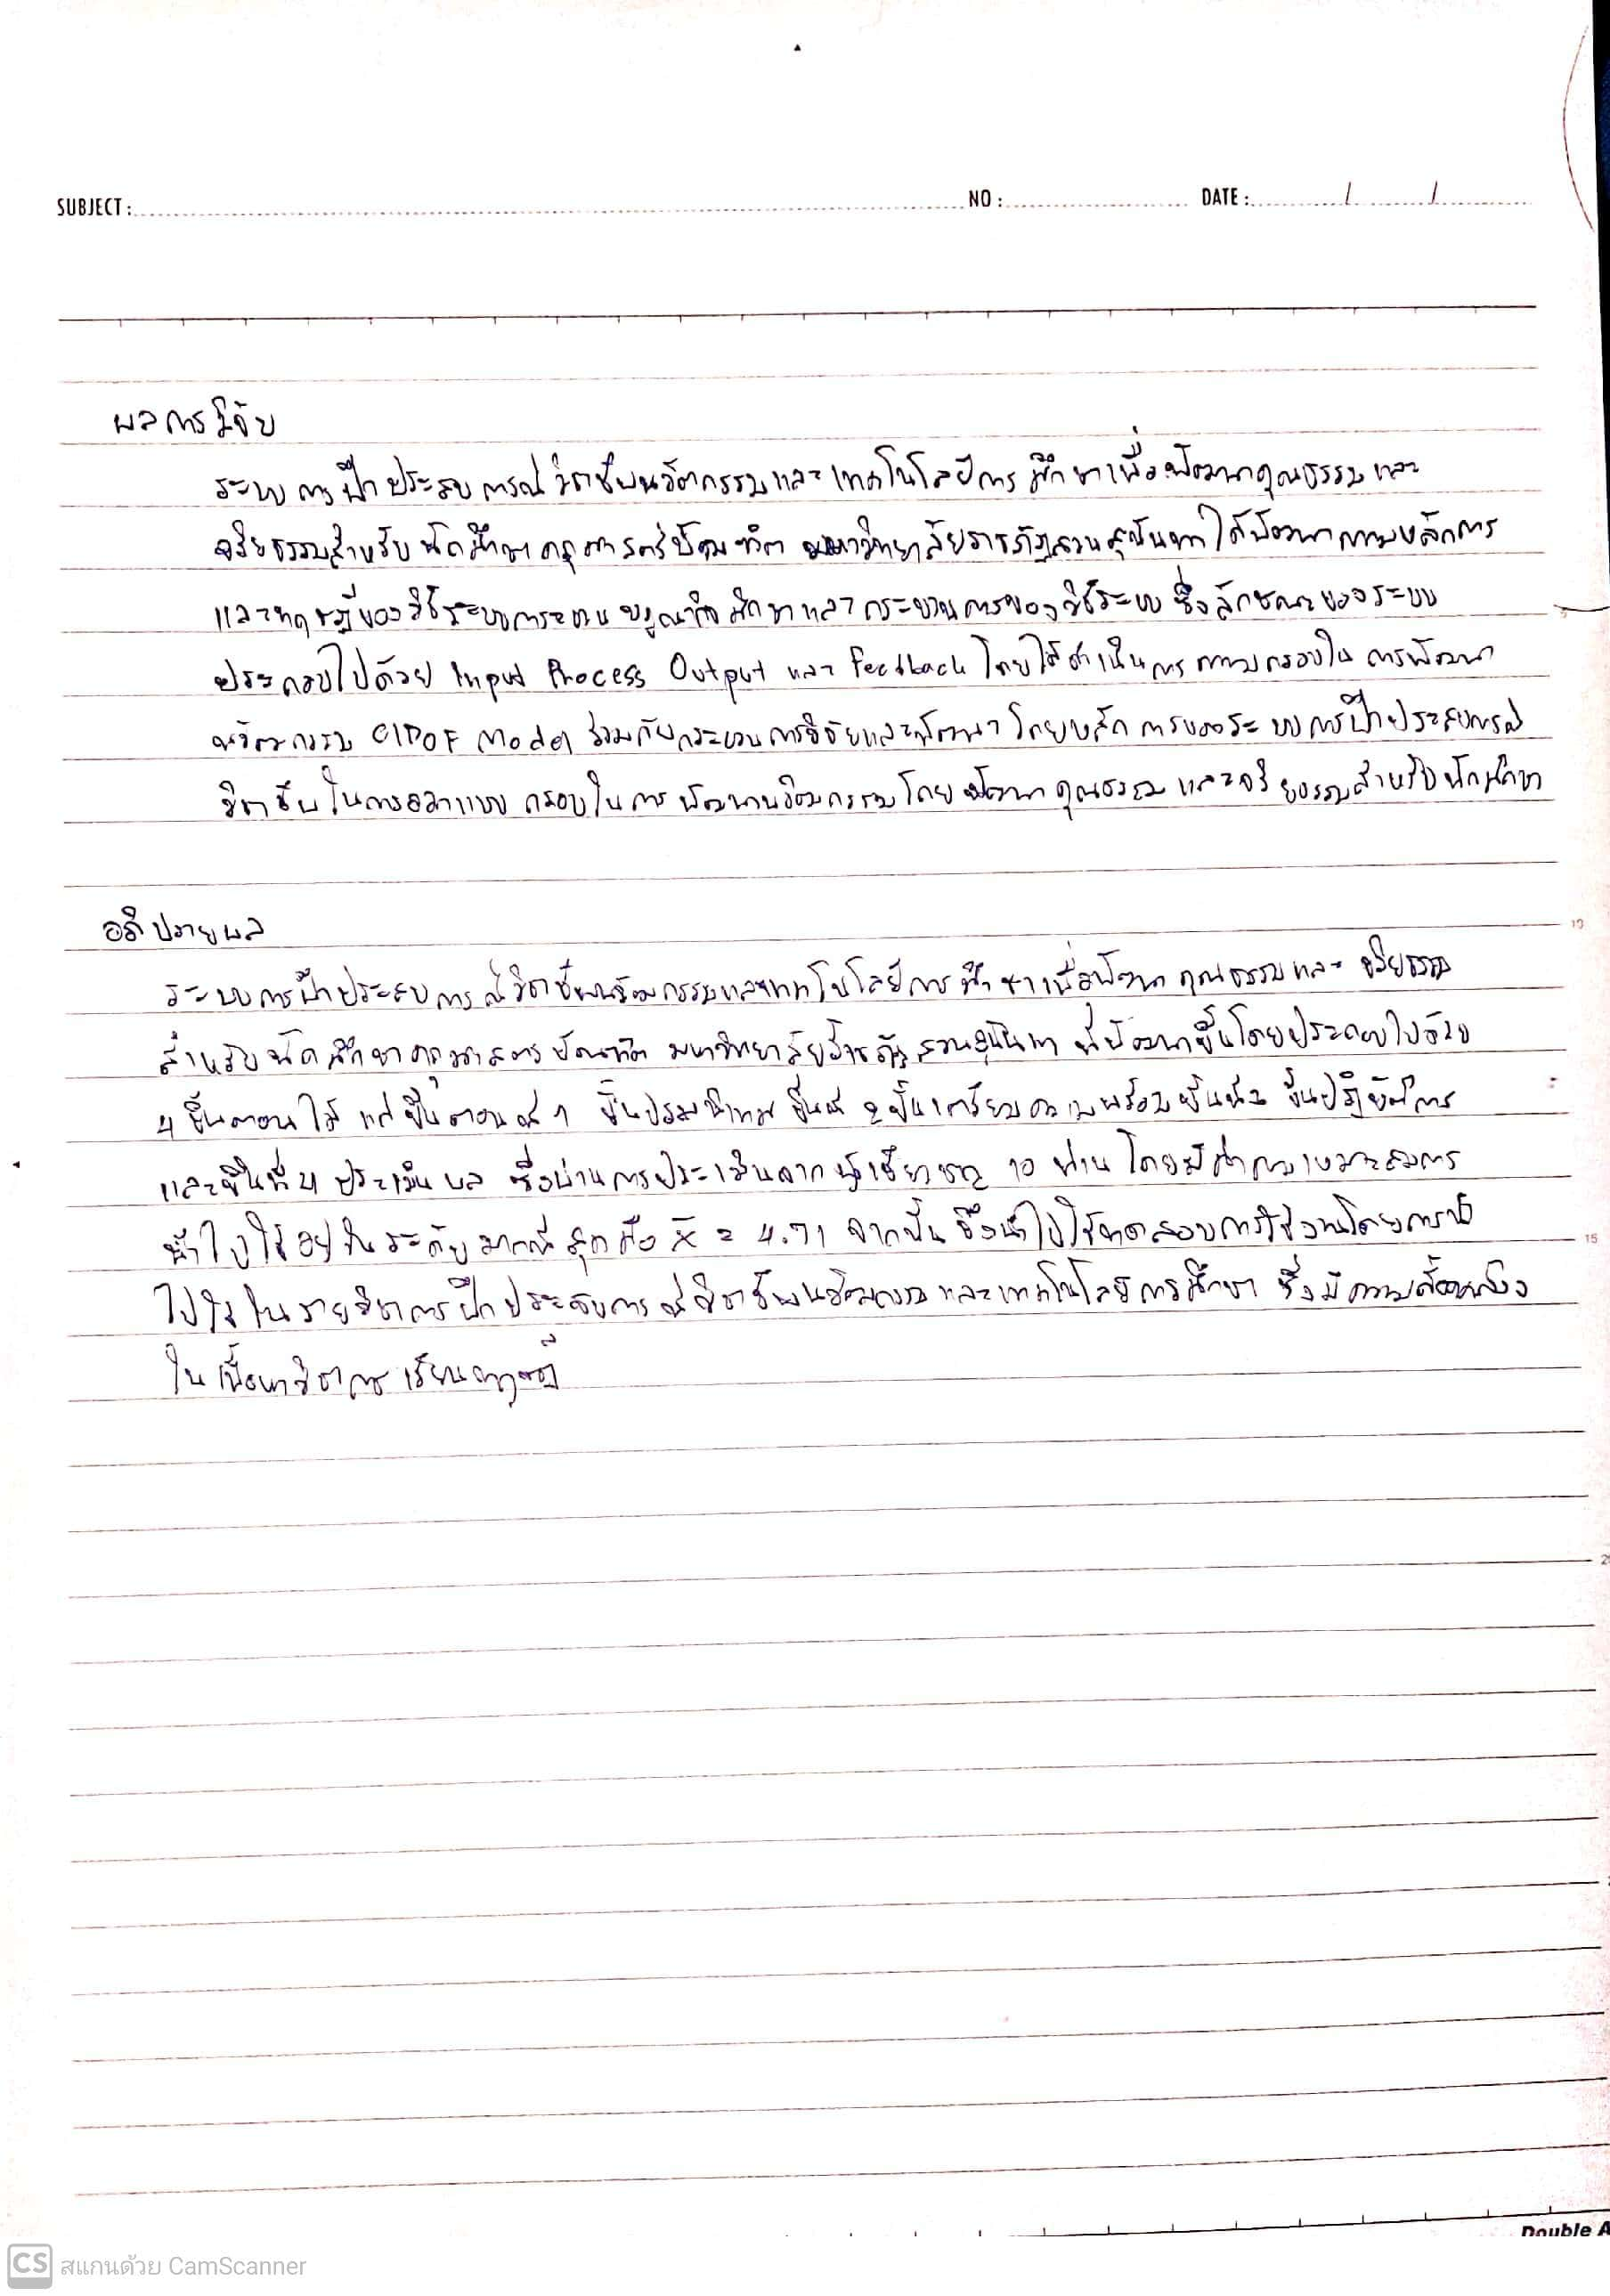 SUBJECT: NO: DATE: / /
ผลการวิจัย
ระบบการฝึกประสบการณ์วิชาชีพนวัตกรรมและเทคโนโลยีการศึกษาเพื่อพัฒนาคุณธรรมและ
จริยธรรมสำหรับนักศึกษาครุศาสตร์บัณฑิต มหาวิทยาลัยราชภัฏสวนสุนันทา ได้พัฒนาตามหลักการ
และทฤษฎีของวิธีระบบการะบวน บูรณาการศึกษาและกระบวนการของวิธีระบบ ซึ่งลักษณะของระบบ
ประกอบไปด้วย Input Process Output และ Feedback โดยได้ดำเนินการตามกรอบใน การพัฒนา
นวัตกรรม CIPOF Model ร่วมกับกระบวนการวิจัยและพัฒนา โดยหลักการของระบบการฝึกประสบการณ์
วิชาชีพ ในการออกแบบ กรอบในการพัฒนานวัตกรรมโดยพัฒนาคุณธรรมและจริยธรรมสำหรับนักศึกษา
อภิปรายผล
ระบบการฝึกประสบการณ์วิชาชีพนวัตกรรมและเทคโนโลยีการศึกษาเพื่อพัฒนาคุณธรรมและ จริยธรรม
สำหรับนักศึกษาครุศาสตรบัณฑิต มหาวิทยาลัยราชภัฏสวนสุนันทา ที่พัฒนาขึ้นโดยประกอบไปด้วย
4 ขั้นตอนได้แก่ ขั้นตอนที่ 1 ขั้นปฐมนิเทศ ขั้นที่ 2 ขั้นเตรียมความพร้อม ขั้นที่ 3 ขั้นปฏิบัติการ
และขั้นที่ 4 ประเมินผล ซึ่งผ่านการประเมินจากผู้เชี่ยวชาญ 10 ท่าน โดยมีค่าความเหมาะสมการ
นำไปใช้อยู่ในระดับมากที่สุดคือ x̄ = 4.71 จากนั้น จึงนำไปใช้ทดสอบการใช้งานโดยการนำ
ไปใช้ในรายวิชาการฝึกประสบการณ์วิชาชีพนวัตกรรมและเทคโนโลยีการศึกษา ซึ่งมีความสอดคล้อง
ในเนื้อหาวิชาการเรียนทฤษฎี
10
15
Double A
CS สแกนด้วย CamScanner